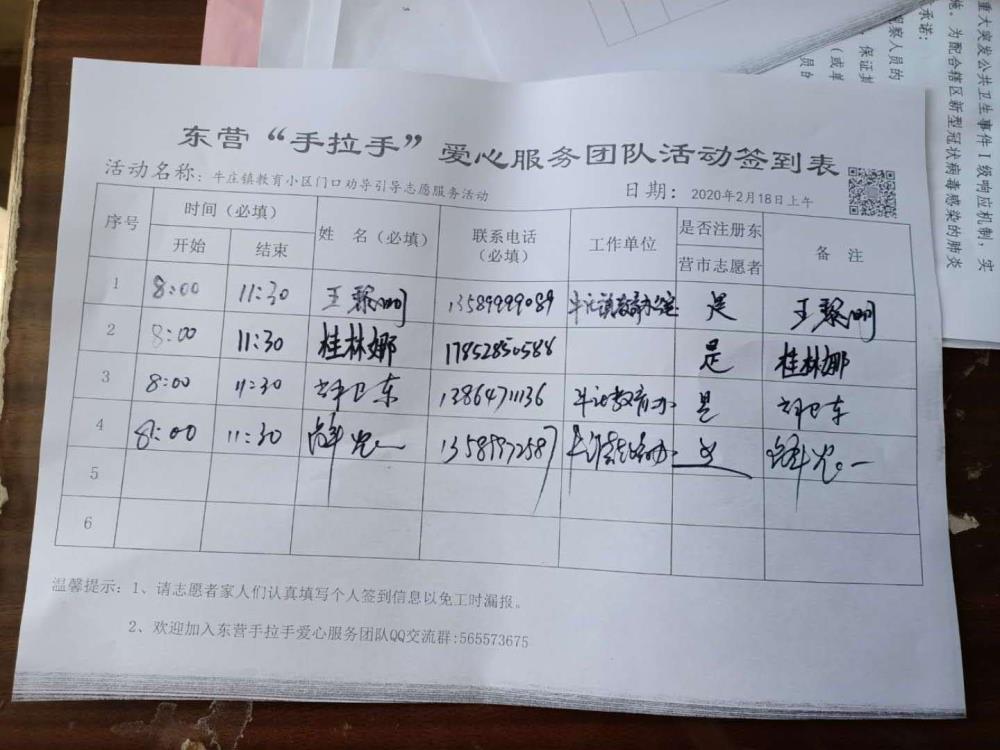 重大突发公共卫生事件Ⅰ级响应机制，实
施。为配合辖区新型冠状病毒感染的肺炎
承诺：
观察人员的
，保证
（或单
员台
东营“手拉手”爱心服务团队活动签到表
活动名称：牛庄镇教育小区门口劝导引导志愿服务活动 日期：2020年2月18日上午
序号 时间（必填） 姓 名（必填） 联系电话（必填） 工作单位 是否注册东营市志愿者 备 注
开始 结束
1 8:00 11:30 王黎明 13589999089 牛庄镇教育办公室 是 王黎明
2 8:00 11:30 桂林娜 17852850588 是 桂林娜
3 8:00 11:30 卫东 13864711136 牛庄教育办 是 卫东
4 8:00 11:30 13589972587
5
6
温馨提示：1、请志愿者家人们认真填写个人签到信息以免工时漏报。
2、欢迎加入东营手拉手爱心服务团队QQ交流群:565573675